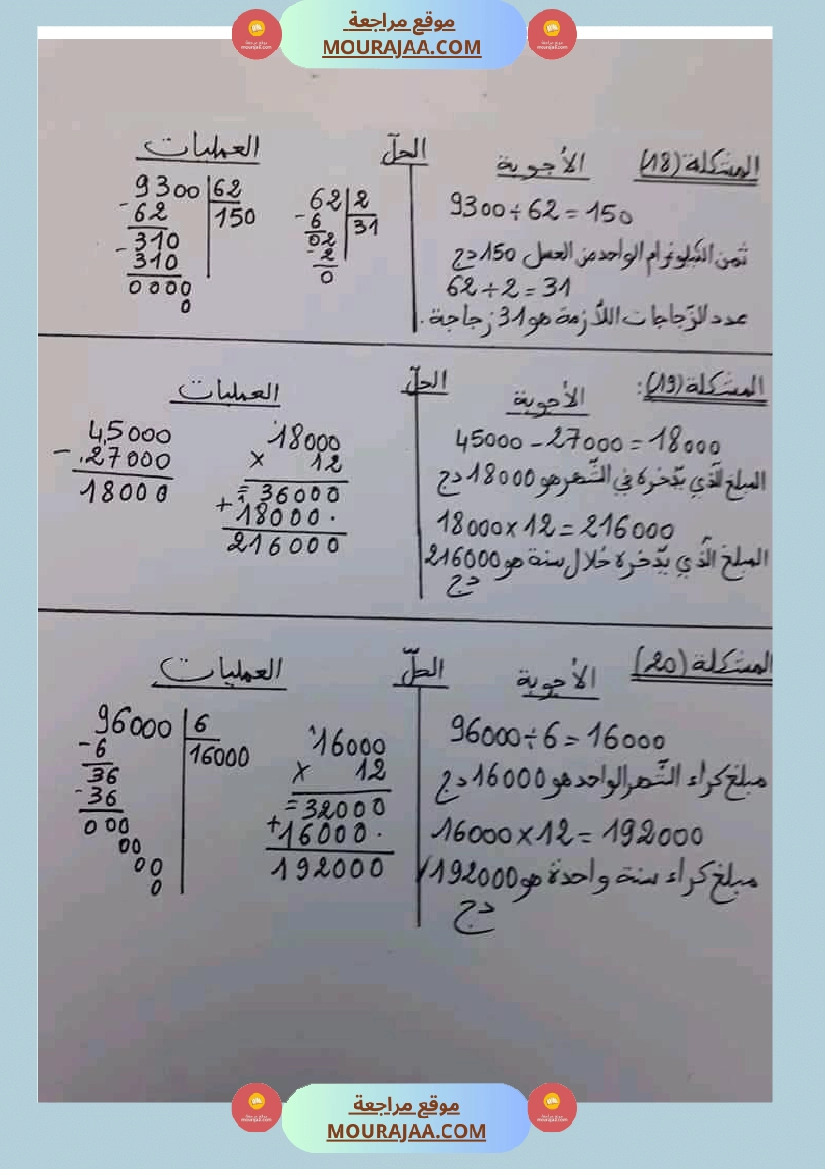 موقع مراجعة
MOURAJAA.COM
المشكلة (18)
الحلّ
الأجوبة
العمليات
9300÷62=150
ثمن الكيلوغرام الواحد من العسل 150دج
62÷2=31
عدد الزّجاجات اللاّزمة هو 31 زجاجة.
9300 62
-62 150
310
-310
0000
0
62 2
-6 31
02
-2
0
المشكلة (19):
الحلّ
الأجوبة
العمليات
45000-27000=18000
المبلغ الّذي يدّخره في الشّهر هو 18000 دج
18000x12=216000
المبلغ الّذي يدّخره خلال سنة هو 216000
دج
18000
x 12
= 36000
+18000.
216000
45000
-27000
18000
المشكلة (20)
الحلّ
الأجوبة
العمليات
96000÷6=16000
مبلغ كراء الشّهر الواحد هو 16000 دج
16000x12=192000
مبلغ كراء سنة واحدة هو 192000
دج
16000
x 12
=32000
+16000.
192000
96000 6
-6 16000
36
-36
000
00
00
0
موقع مراجعة
MOURAJAA.COM